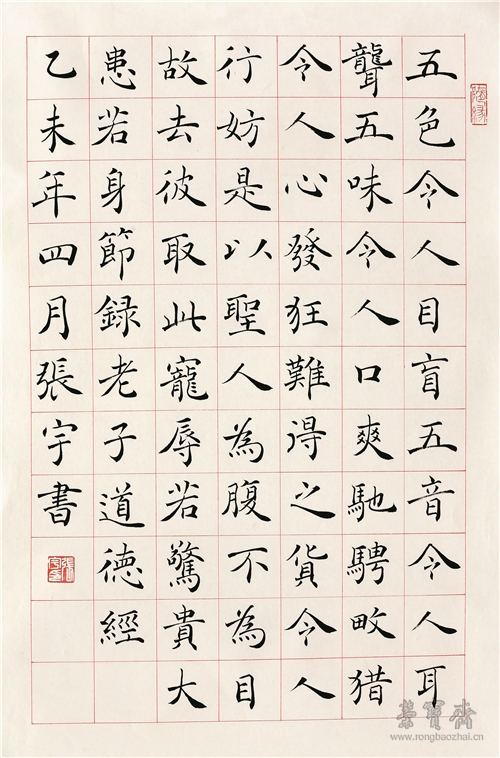 五色令人目盲五音令人耳
聾五味令人口爽馳騁畋猎
令人心發狂難得之貨令人
行妨是以聖人為腹不為目
故去彼取此寵辱若驚貴大
患若身節録老子道徳經
乙未年四月張宇書
榮寶齋
www.rongbaozhai.cn